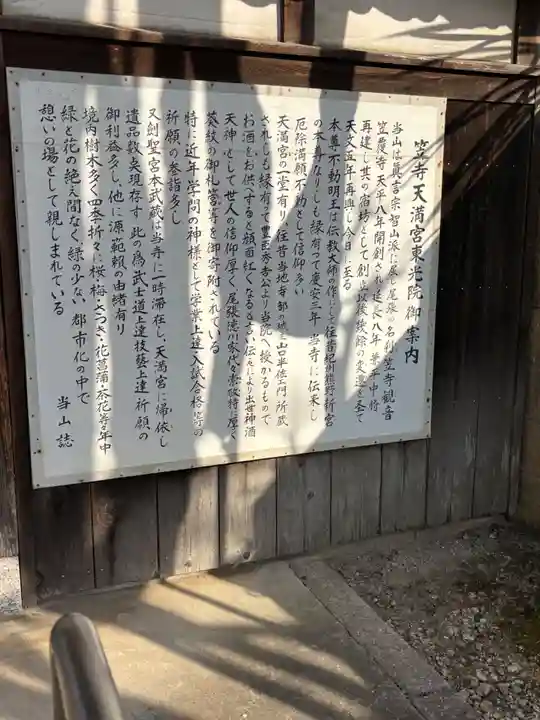 笠寺天満宮東光院御案内
当山は真言宗智山派に属し尾張の名刹笠寺観音
笠覆寺天平八年開創され延長八年兼平中将
再建し其の宿坊として創立以後幾餘の変遷を経て
天文五年再興し今日に至る
本尊不動明王は伝教大師の作にして往昔紀州熊野新宮
の本尊なりしも縁有って慶安三年当寺に伝来し
厄除満願不動として信仰多い
天満宮の一堂有り往昔当地寺部の城主山口半佐エ門所蔵
されしも縁有って豊臣秀吉公より当院へ授かるもので
お酒をお供へすると顔面紅くなるとの言い伝えにより出世神酒
天神として世人の信仰厚く尾張徳川家代々崇敬特に厚く
葵紋の御札箱等を御寄附されている
特に近年学問の神様として学業上達入試合格等の
祈願の参詣多し
又剣聖宮本武蔵は当寺に一時滞在し、天満宮に帰依し
遺品数点現存す 此の為武士道上達技藝上達祈願の
御利益多し、他に源範頼の由緒有り
境内樹木多く四季折々に桜・梅・さつき・花菖蒲・茶花等年中
緑と花の絶え間なく、緑の少ない都市化の中で
憩いの場として親しまれている
当山誌